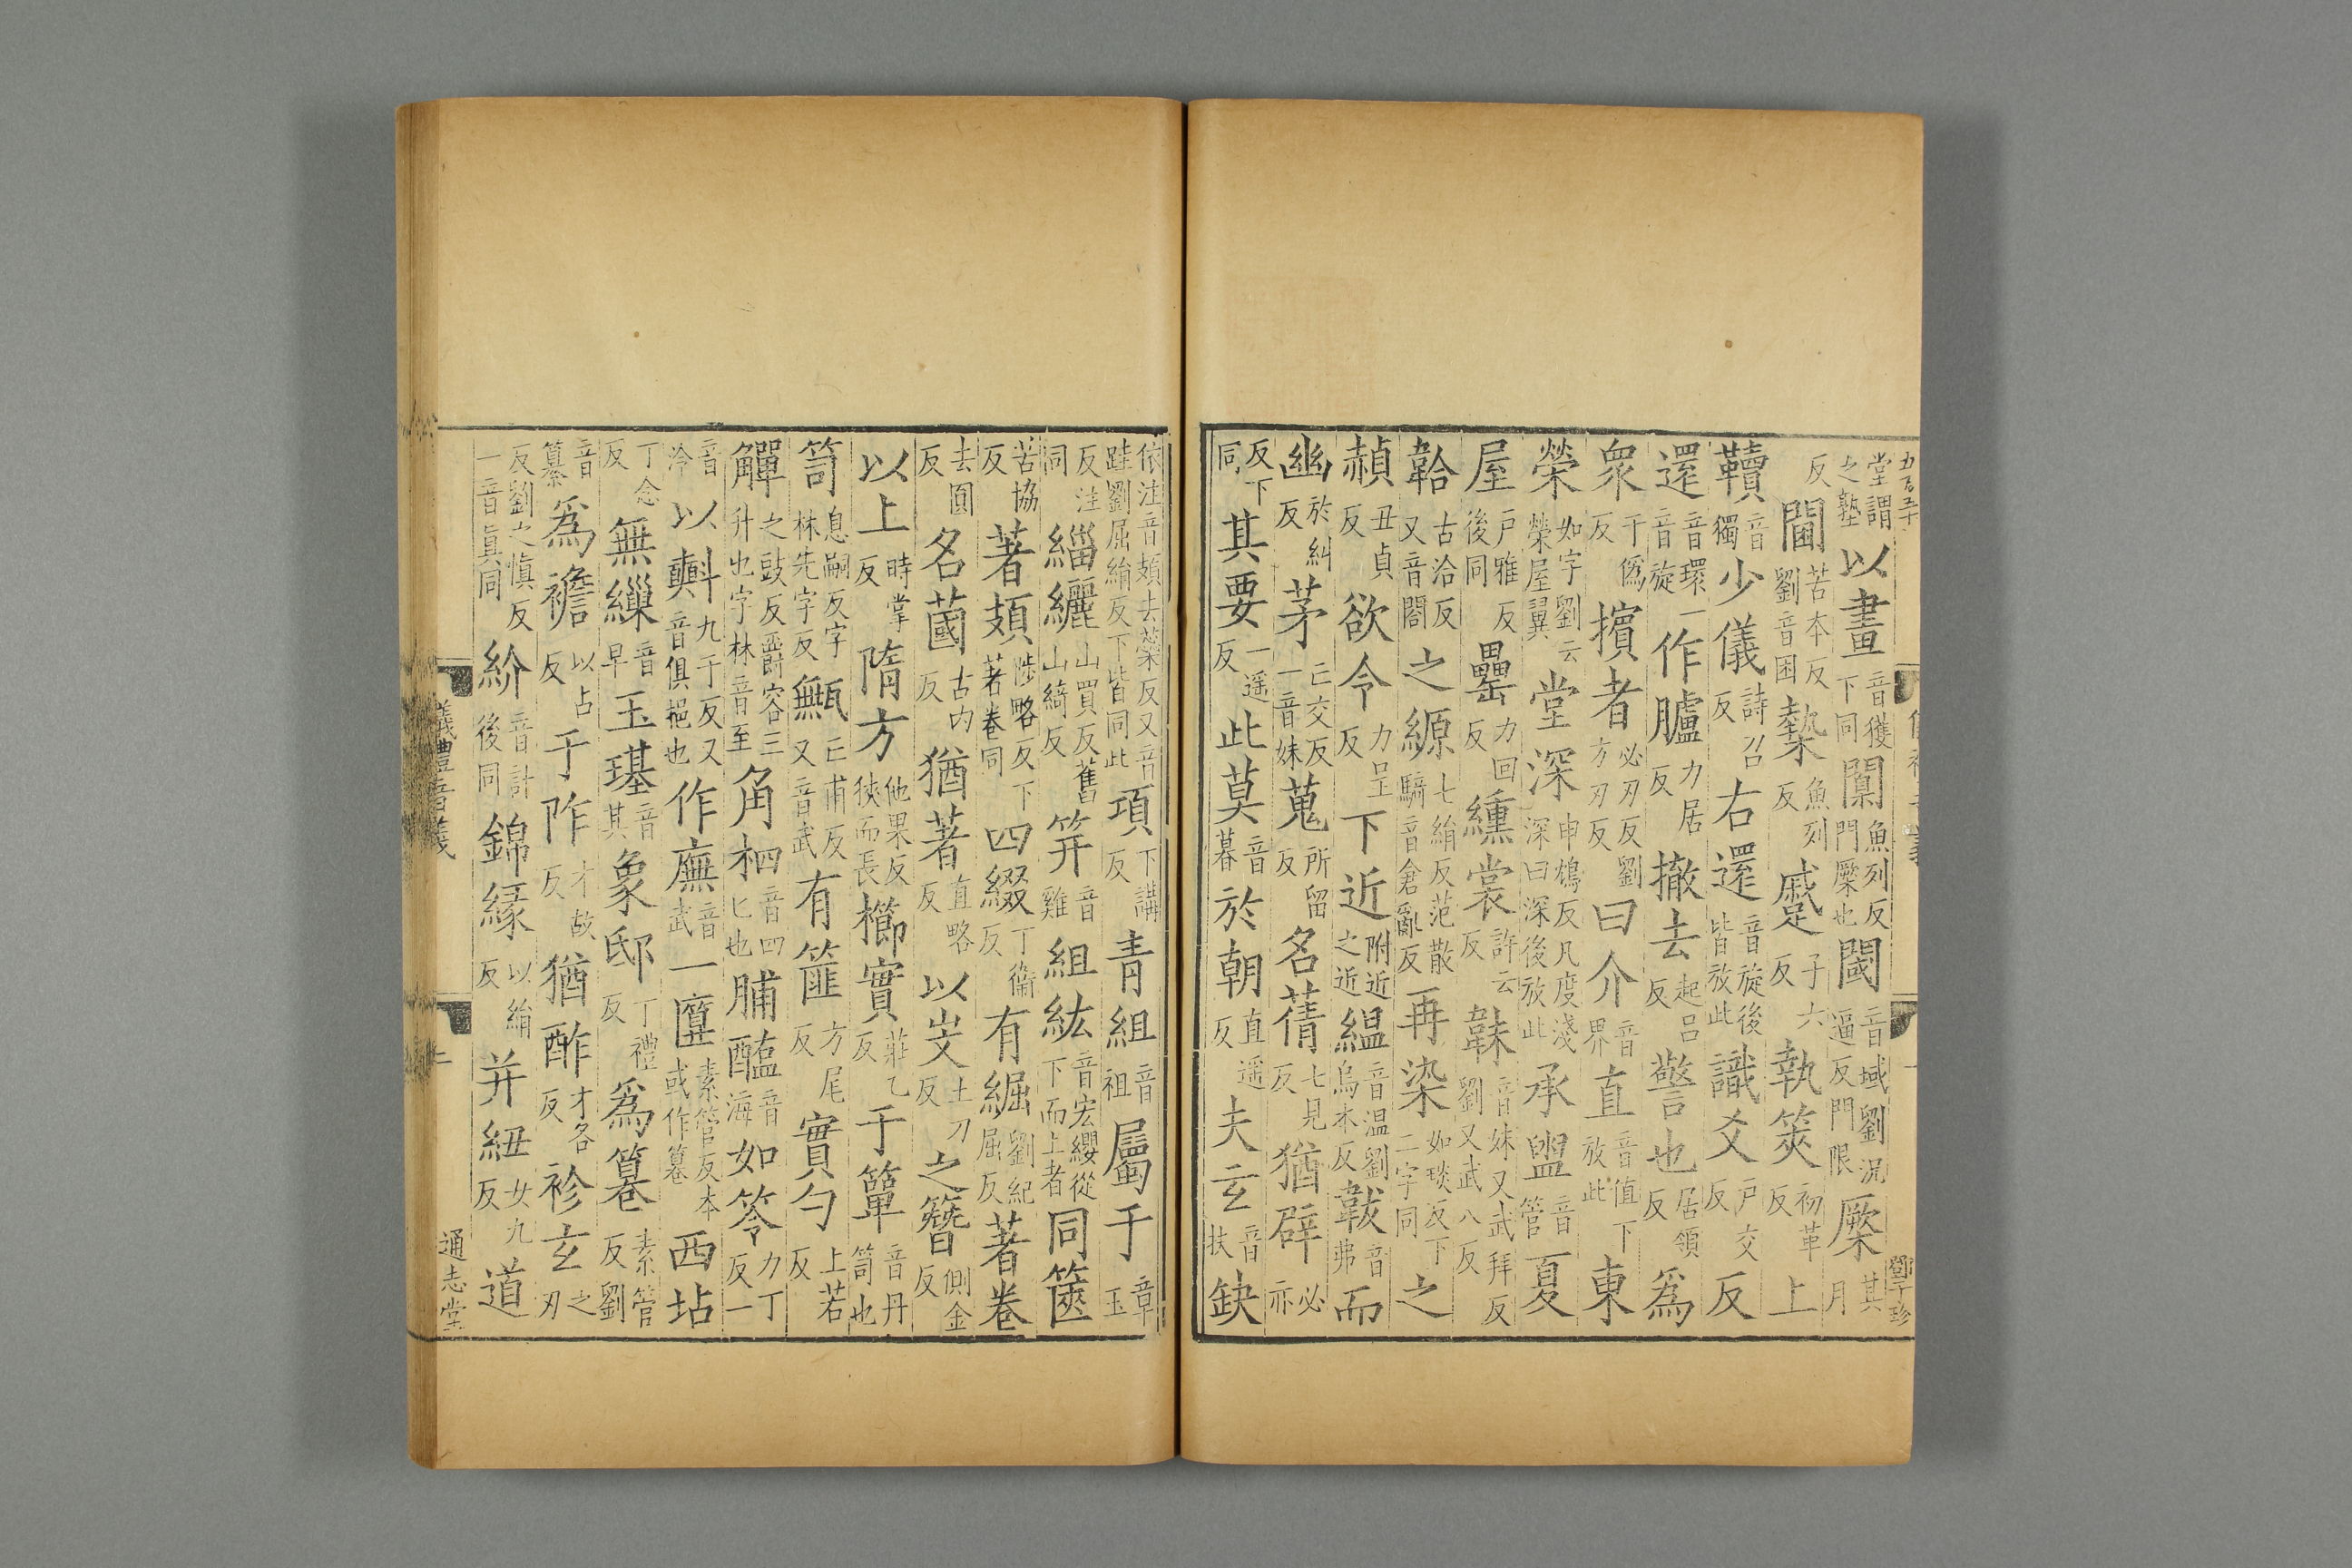 五百五十
鄧子珍
堂謂之塾以畫音獲下同闑魚列反門橜也閾音域劉況逼反門限橜其月
反閫苦本反劉音困槷魚列反蹙子六反執筴初革反上
韇音獨少儀詩召反右還音旋後皆放此識爻戶交反反
還音環一音旋作臚力居反撤去起呂反警也居領反爲
眾于僞反擯者必刃反劉方刃反曰介音界直音值下放此東
榮如字劉云榮屋翼堂深申鴆反凡度淺深曰深後放此承盥音管夏
屋戶雅反後同罍力回反纁裳許云反韎音妹又武拜反劉又武八反
韐古洽反又音閤之縓七絹反范散騎音倉亂反再染如琰反下二字同之
赬丑貞反欲令力呈反下近附近之近縕音温劉烏本反韍音弗而
幽於糾反茅亡交反一音妹蒐所留反名蒨七見反猶辟必亦
反下同其要一遥反此莫音暮於朝直遥反夫玄音扶缺
依注音頍去蘂反又音跬劉屈絹反下皆同此項下講反青組音祖屬于章玉
反注同緇纚山買反舊山綺反笄音雞組紘音宏纓從下而上者同篋
苦協反著頍陟略反下著卷同四綴丁衞反有𦀖劉紀屈反著卷
去圓反名蔮古內反猶著直略反以㞢土刀反之簪側金反
以上時掌反隋方他果反狹而長櫛實莊乙反于簞音丹笥也
笥息嗣反字林先字反甒亡甫反又音武有篚方尾反實勺上若反
觶之豉反爵容三升也字林音至角柶音四匕也脯醢音海如笭力丁反一
音泠以㪺九于反又音俱挹也作廡音武一匴素管反本或作篹西坫
丁念反無繅音早玉璂音其象邸丁禮反爲篹素管反劉
音纂爲襜以占反于阼才故反猶酢才各反袗玄之刃
反劉之慎反一音真同紒音計後同錦緣以絹反并紐女九反道
儀禮音義
二
通志堂